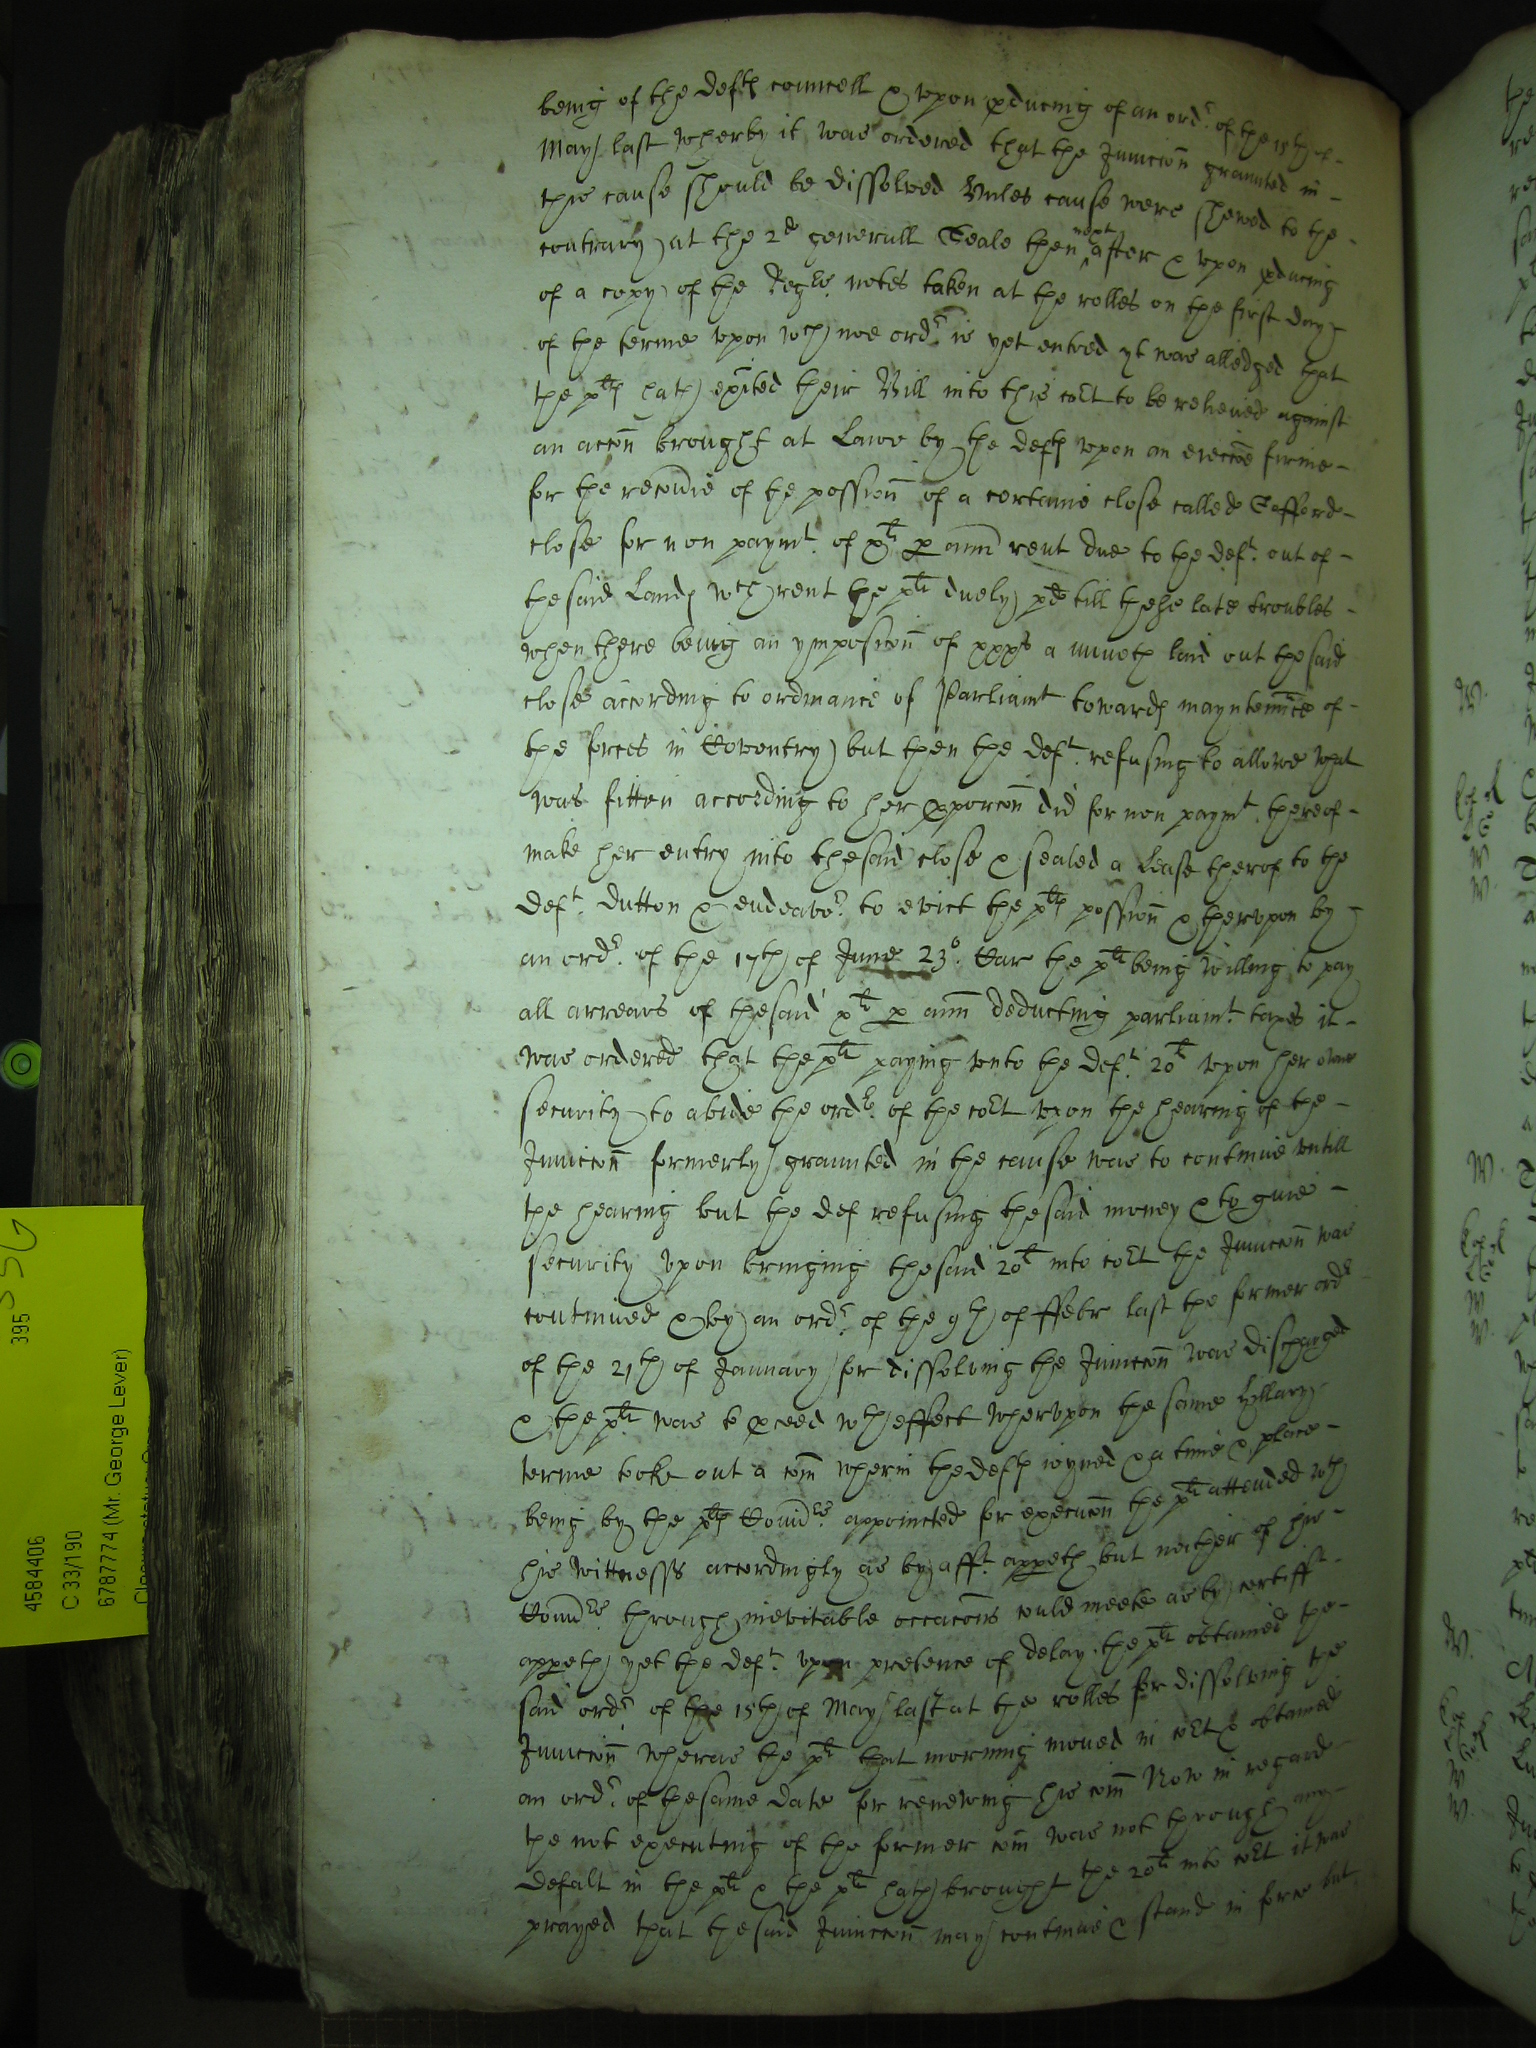 being of the defts councell & upon pducing of an ordr. of the 15th of
May last wherby it was ordered that the Iniuccon graunted in
this cause should be dissolved Unles cause were shewed to the
contrary at the 2d generall Seale then next after & upon pducing
of a copy of the Regrs. notes taken at the rolles on the first day
of the terme upon wch noe ordr. is yet entred yt was alledged that
the plts hath exited their Bill into this coLt to be releived against
an accon brought at Lawe by the defts upon an eiectoe firme
for the recoverie of the possion of a certaine close called Sefford
close for non paymt. of xli p ann rent due to the deft. out of
the said Lands wch rent the plt duely pd till these late troubles
when there being an ymposicon of xxxs a moneth laid out the said
close according to ordinance of Parliamt towards mayntennce of
the forces in Coventry but then the deft. refusing to allowe what
was fitten according to her pporcon did for non paymt. thereof
make her entry into the said close & sealed a Lease therof to the
deft. Dutton & endeavor. to evict the plts possion & therupon by
an ordr. of the 17th of June 23o. Car the plt being willing to pay
all arrears of the said xli p ann deducting parliamt. taxes it
was ordered that the plt paying unto the deft. 20li upon her owne
security to abide the ordr. of the coLt upon the hearing of the
Iniuccon formerly graunted in the cause was to continue untill
the hearing but the def refusing the said money & to give
security upon bringing the said 20li into coLt the Iniuccon was
continued & by an ordr. of the 9th of ffebr last the former ordr
of the 21th of January for dissolving the Iniuccon was discharged
& the plt. was to pceed wth effect wherupon the same Hillary
terme tooke out a com wherin the defts ioyned & a time & place
being by the plts Comrs. appointed for execucon the plt attended wth
his wittnesss accordingly as by afft. appeth but neither of his
Comrs. through inevitable occacons could meete as by certifft
appeth yet the deft. upon pretence of delay the plt obtained the
said ordr. of the 15th of May last at the rolles for dissolving the
Iniuccon wheras the plt that morning moved in coLt & obtained
an ordr. of the same date for renewing his com Now in regard
the not executing of the former com was not through any
defalt in the plt & the plt hath brought the 20li into coLt it was
prayed that the said Iniuccon may continue & stand in force but
395
4584406
C 33/190
6787774 (Mr. George Lever)